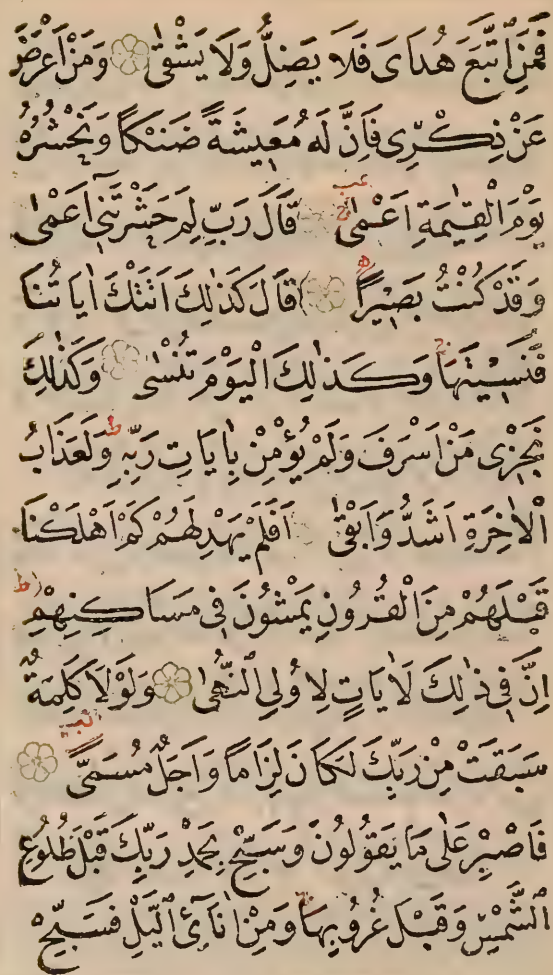 فَمَنِ اتَّبَعَ هُدَاىَ فَلَا يَضِلُّ وَلَا يَشْقٰى وَمَنْ اَعْرَضَ
عَنْ ذِكْرِى فَاِنَّ لَهُ مَعِيشَةً ضَنْكًا وَنَحْشُرُهُ
يَوْمَ الْقِيٰمَةِ اَعْمٰى قَالَ رَبِّ لِمَ حَشَرْتَنِى اَعْمٰى
وَقَدْ كُنْتُ بَصِيرًا قَالَ كَذٰلِكَ اَتَتْكَ اٰيَاتُنَا
فَنَسِيتَهَا وَكَذٰلِكَ الْيَوْمَ تُنْسٰى وَكَذٰلِكَ
نَجْزِى مَنْ اَسْرَفَ وَلَمْ يُؤْمِنْ بِاٰيَاتِ رَبِّهِ وَلَعَذَابُ
الْاٰخِرَةِ اَشَدُّ وَاَبْقٰى اَفَلَمْ يَهْدِ لَهُمْ كَمْ اَهْلَكْنَا
قَبْلَهُمْ مِنَ الْقُرُونِ يَمْشُونَ فِى مَسَاكِنِهِمْ
اِنَّ فِى ذٰلِكَ لَاٰيَاتٍ لِاُولِى النُّهٰى وَلَوْلَا كَلِمَةٌ
سَبَقَتْ مِنْ رَبِّكَ لَكَانَ لِزَامًا وَاَجَلٌ مُسَمًّى
فَاصْبِرْ عَلٰى مَا يَقُولُونَ وَسَبِّحْ بِحَمْدِ رَبِّكَ قَبْلَ طُلُوعِ
الشَّمْسِ وَقَبْلَ غُرُوبِهَا وَمِنْ اٰنَآئِ الَّيْلِ فَسَبِّحْ